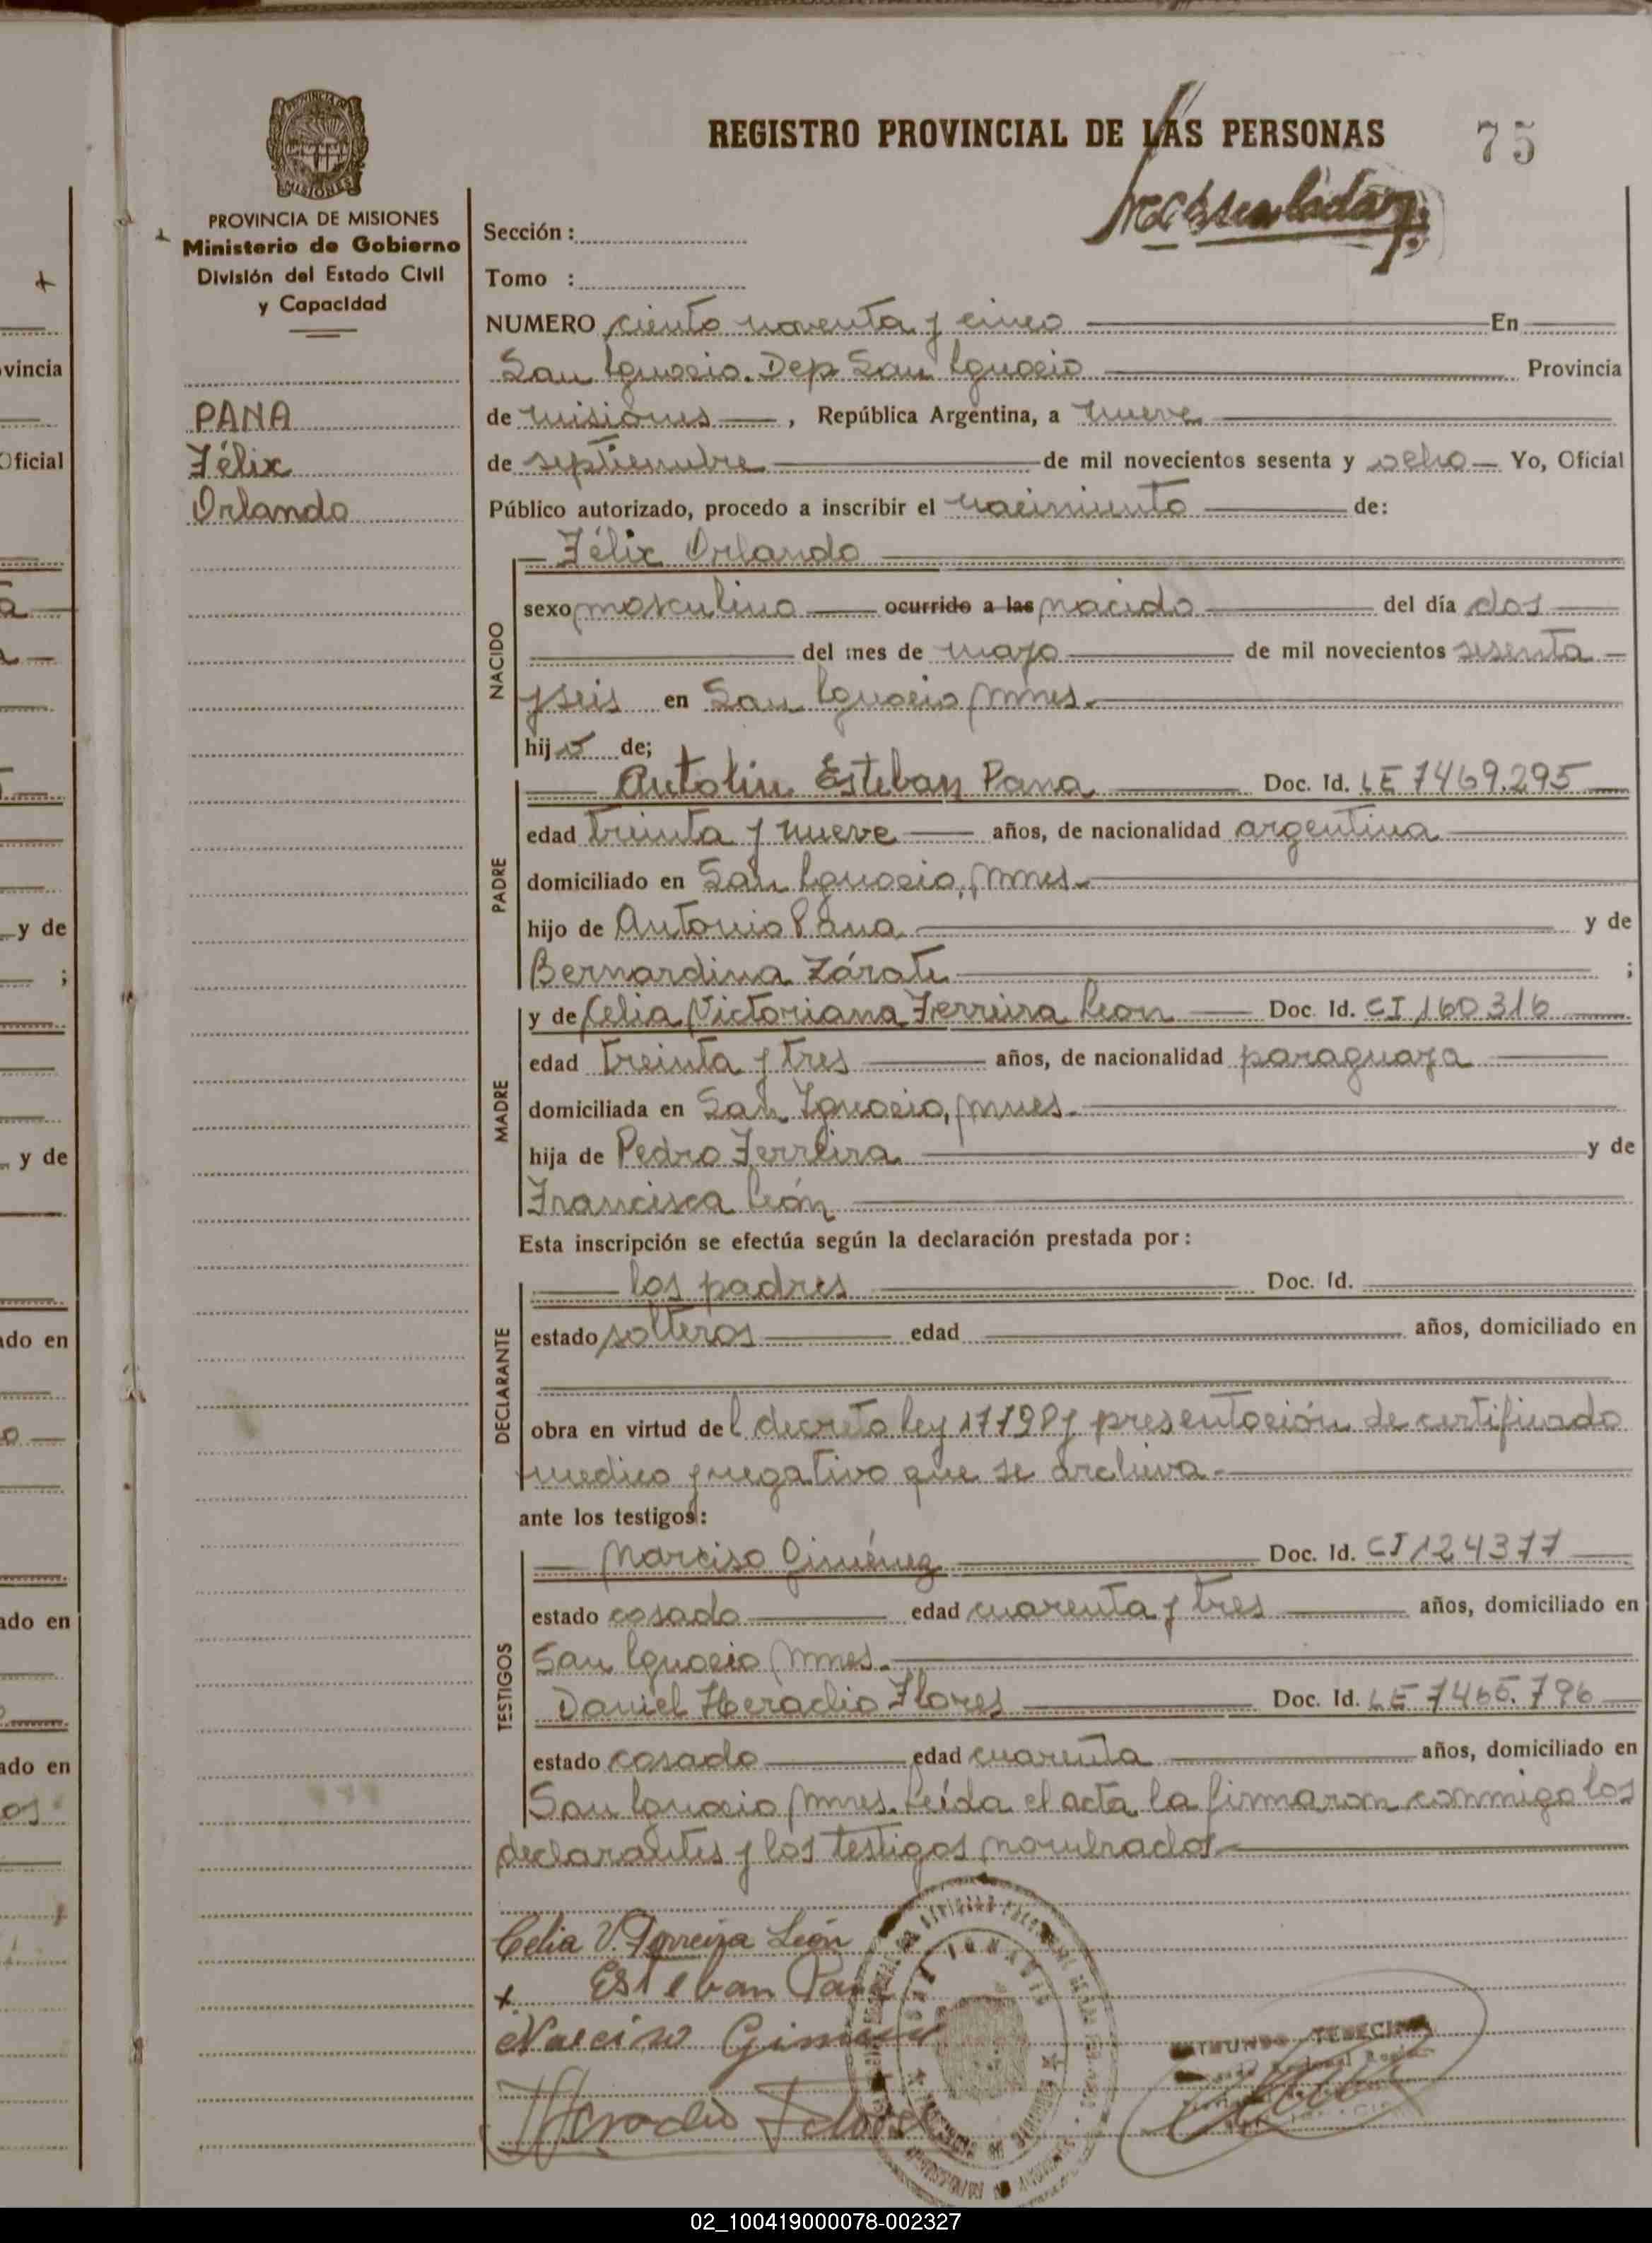 REGISTRO PROVINCIAL DE LAS PERSONAS
75
PROVINCIA DE MISIONES
Ministerio de Gobierno
División del Estado Civil
y Capacidad
PANA
Félix
Orlando
Sección :
Tomo :
NUMERO ciento noventa y cinco En
San Ignacio. Dep San Ignacio Provincia
de Misiones , República Argentina, a nueve
de septiembre de mil novecientos sesenta y ocho Yo, Oficial
Público autorizado, procedo a inscribir el nacimiento de:
NACIDO
Félix Orlando
sexo masculino ocurrido a las nacido del día dos
del mes de mayo de mil novecientos sesenta
y seis en San Ignacio, Mnes.
hijo de;
PADRE
Antolin Esteban Pana Doc. Id. LE 7469.295
edad treinta y nueve años, de nacionalidad argentina
domiciliado en San Ignacio, Mnes.
hijo de Antonio Pana y de
Bernardina Zárate ;
MADRE
y de Celia Victoriana Ferreira Leon Doc. Id. CI 160316
edad treinta y tres años, de nacionalidad paraguaya
domiciliada en San Ignacio, mnes.
hija de Pedro Ferreira y de
Francisca León
Esta inscripción se efectúa según la declaración prestada por :
DECLARANTE
los padres Doc. Id.
estado solteros edad años, domiciliado en
obra en virtud del decreto ley 17798 y presentación de certificado
medico y negativo que se archiva.
ante los testigos:
TESTIGOS
Narciso Giménez Doc. Id. CI 124377
estado casado edad cuarenta y tres años, domiciliado en
San Ignacio, Mnes.
Daniel Heraclio Flores Doc. Id. LE 7465.796
estado casado edad cuarenta años, domiciliado en
San Ignacio, Mnes. Leída el acta la firmaron conmigo los
declarantes y los testigos nombrados
Celia V. Ferreira León
x Esteban Pana
Narciso Gimenez
Heraclio Flores
SAN IGNACIO
02_100419000078-002327
vincia
Oficial
y de
;
y de
ado en
ado en
ado en